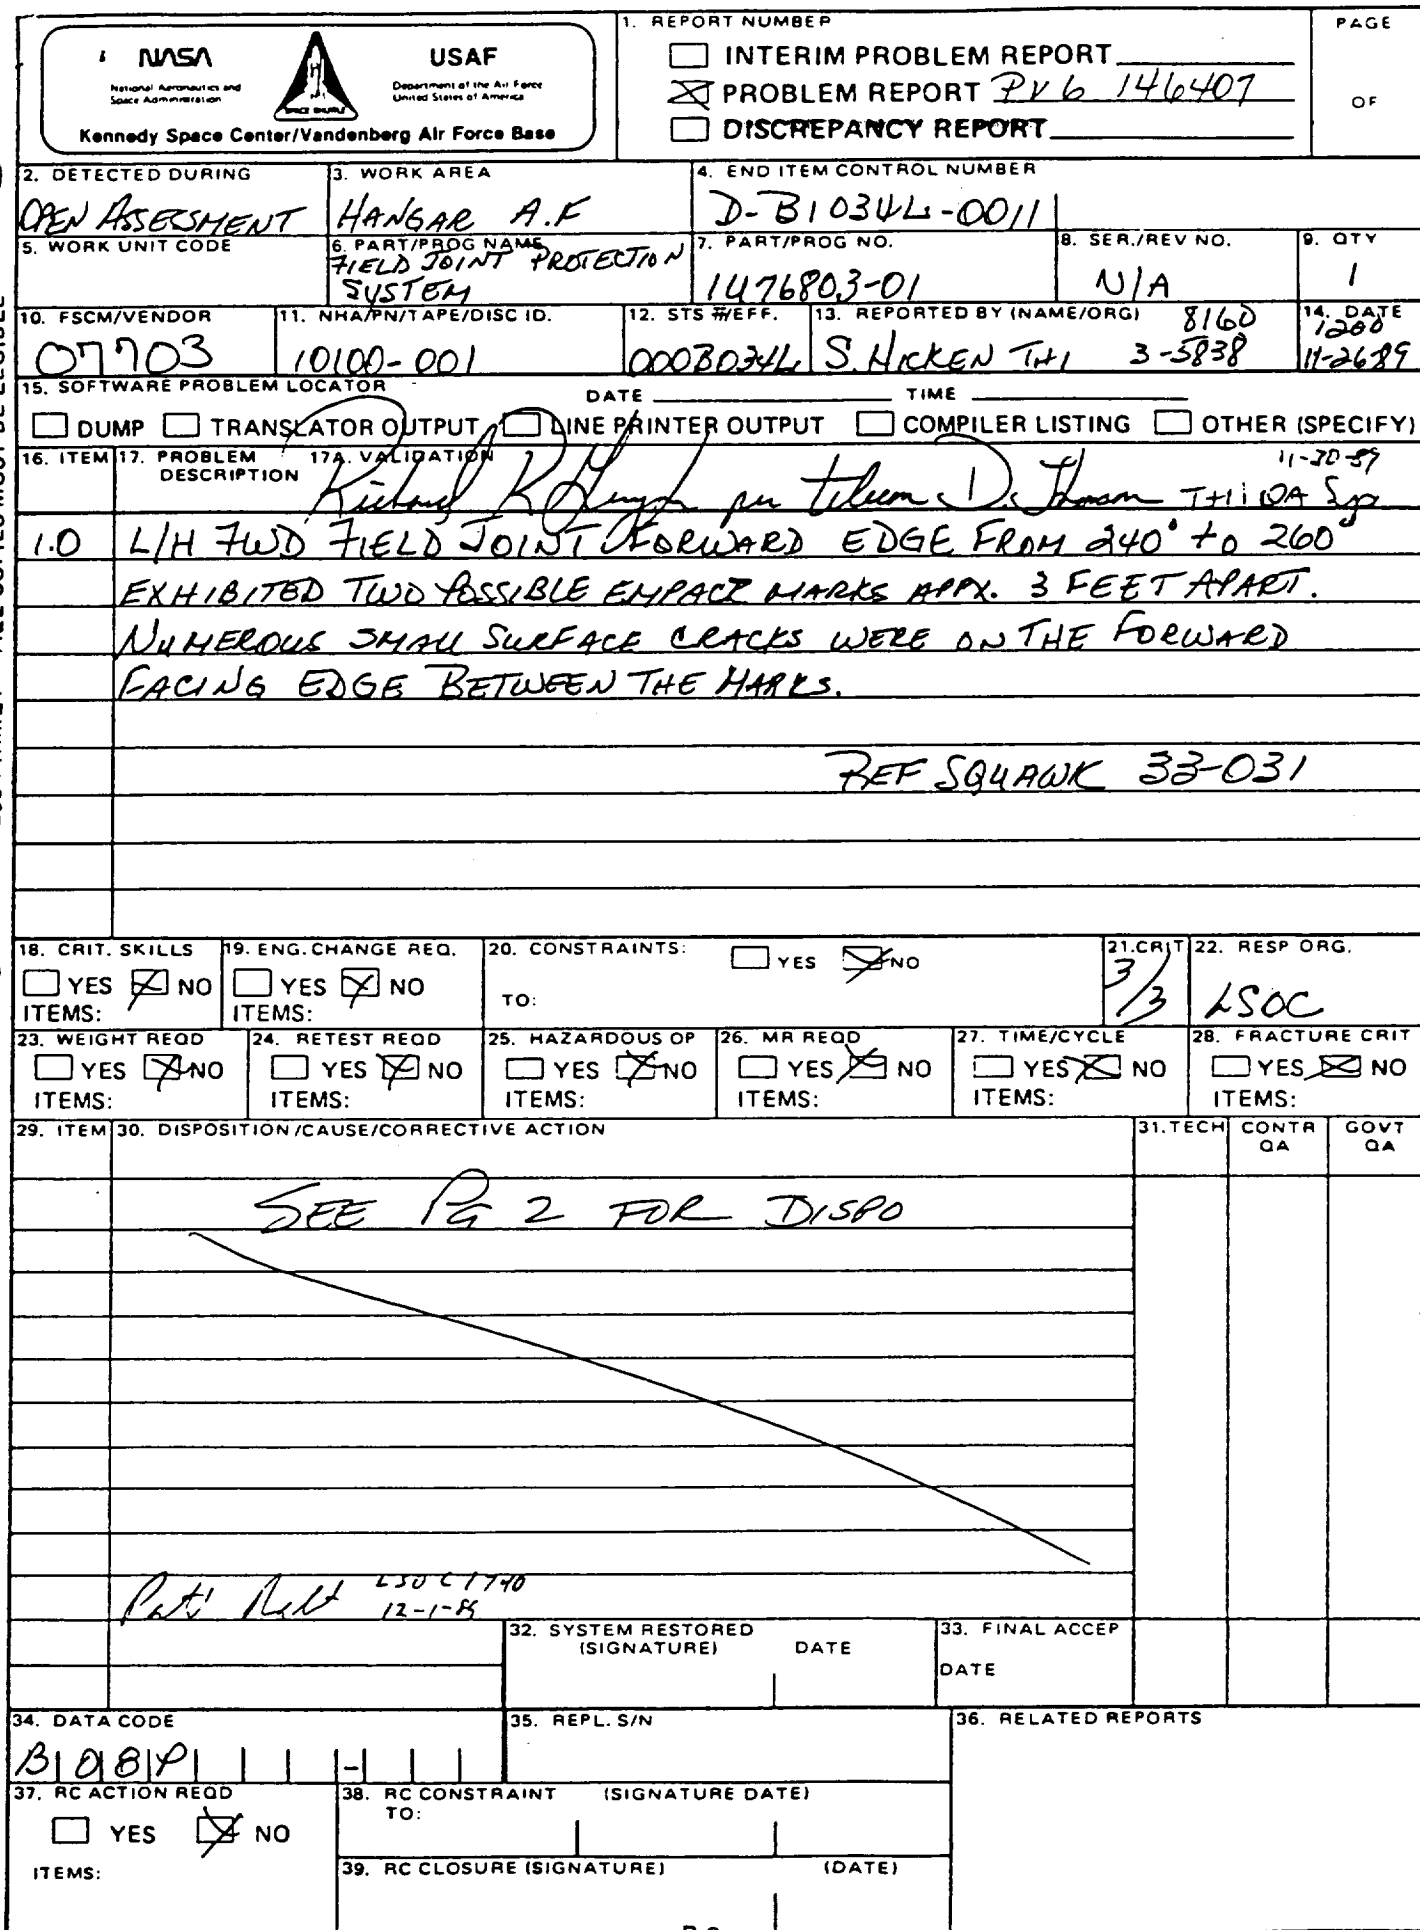 NASA
National Aeronautics and
Space Administration
SPACE SHUTTLE
USAF
Department of the Air Force
United States of America
Kennedy Space Center/Vandenberg Air Force Base
1. REPORT NUMBER
INTERIM PROBLEM REPORT
PROBLEM REPORT PV6 146407
DISCREPANCY REPORT
PAGE
OF
2. DETECTED DURING
OPEN ASSESSMENT
3. WORK AREA
HANGAR A.F
4. END ITEM CONTROL NUMBER
D-B1034L-0011
5. WORK UNIT CODE
6. PART/PROG NAME
FIELD JOINT PROTECTION
SYSTEM
7. PART/PROG NO.
1U76803-01
8. SER./REV NO.
N/A
9. QTY
1
10. FSCM/VENDOR
07703
11. NHA/PN/TAPE/DISC ID.
10100-001
12. STS #/EFF.
000B034L
13. REPORTED BY (NAME/ORG)
8160
S. HICKEN THI 3-5838
14. DATE
1200
11-26-89
15. SOFTWARE PROBLEM LOCATOR
DATE TIME
DUMP TRANSLATOR OUTPUT LINE PRINTER OUTPUT COMPILER LISTING OTHER (SPECIFY)
16. ITEM 17. PROBLEM DESCRIPTION 17A. VALIDATION
11-30-89
Richard per telecon D. Thomson
1.0 L/H FWD FIELD JOINT FORWARD EDGE FROM 240° to 260°
EXHIBITED TWO POSSIBLE EMPACT MARKS APPX. 3 FEET APART.
NUMEROUS SMALL SURFACE CRACKS WERE ON THE FORWARD
FACING EDGE BETWEEN THE MARKS.
REF SQUAWK 33-031
18. CRIT. SKILLS
YES NO
ITEMS:
19. ENG. CHANGE REQ.
YES NO
ITEMS:
20. CONSTRAINTS: YES NO
TO:
21. CRIT
3/3
22. RESP ORG.
LSOC
23. WEIGHT REQD
YES NO
ITEMS:
24. RETEST REQD
YES NO
ITEMS:
25. HAZARDOUS OP
YES NO
ITEMS:
26. MR REQD
YES NO
ITEMS:
27. TIME/CYCLE
YES NO
ITEMS:
28. FRACTURE CRIT
YES NO
ITEMS:
29. ITEM 30. DISPOSITION/CAUSE/CORRECTIVE ACTION
31. TECH CONTR QA GOVT QA
SEE PG 2 FOR DISPO
LSOC 1740
12-1-89
32. SYSTEM RESTORED
(SIGNATURE) DATE
33. FINAL ACCEP
DATE
34. DATA CODE
B08P -
35. REPL. S/N
36. RELATED REPORTS
37. RC ACTION REQD
YES NO
ITEMS:
38. RC CONSTRAINT (SIGNATURE DATE)
TO:
39. RC CLOSURE (SIGNATURE) (DATE)